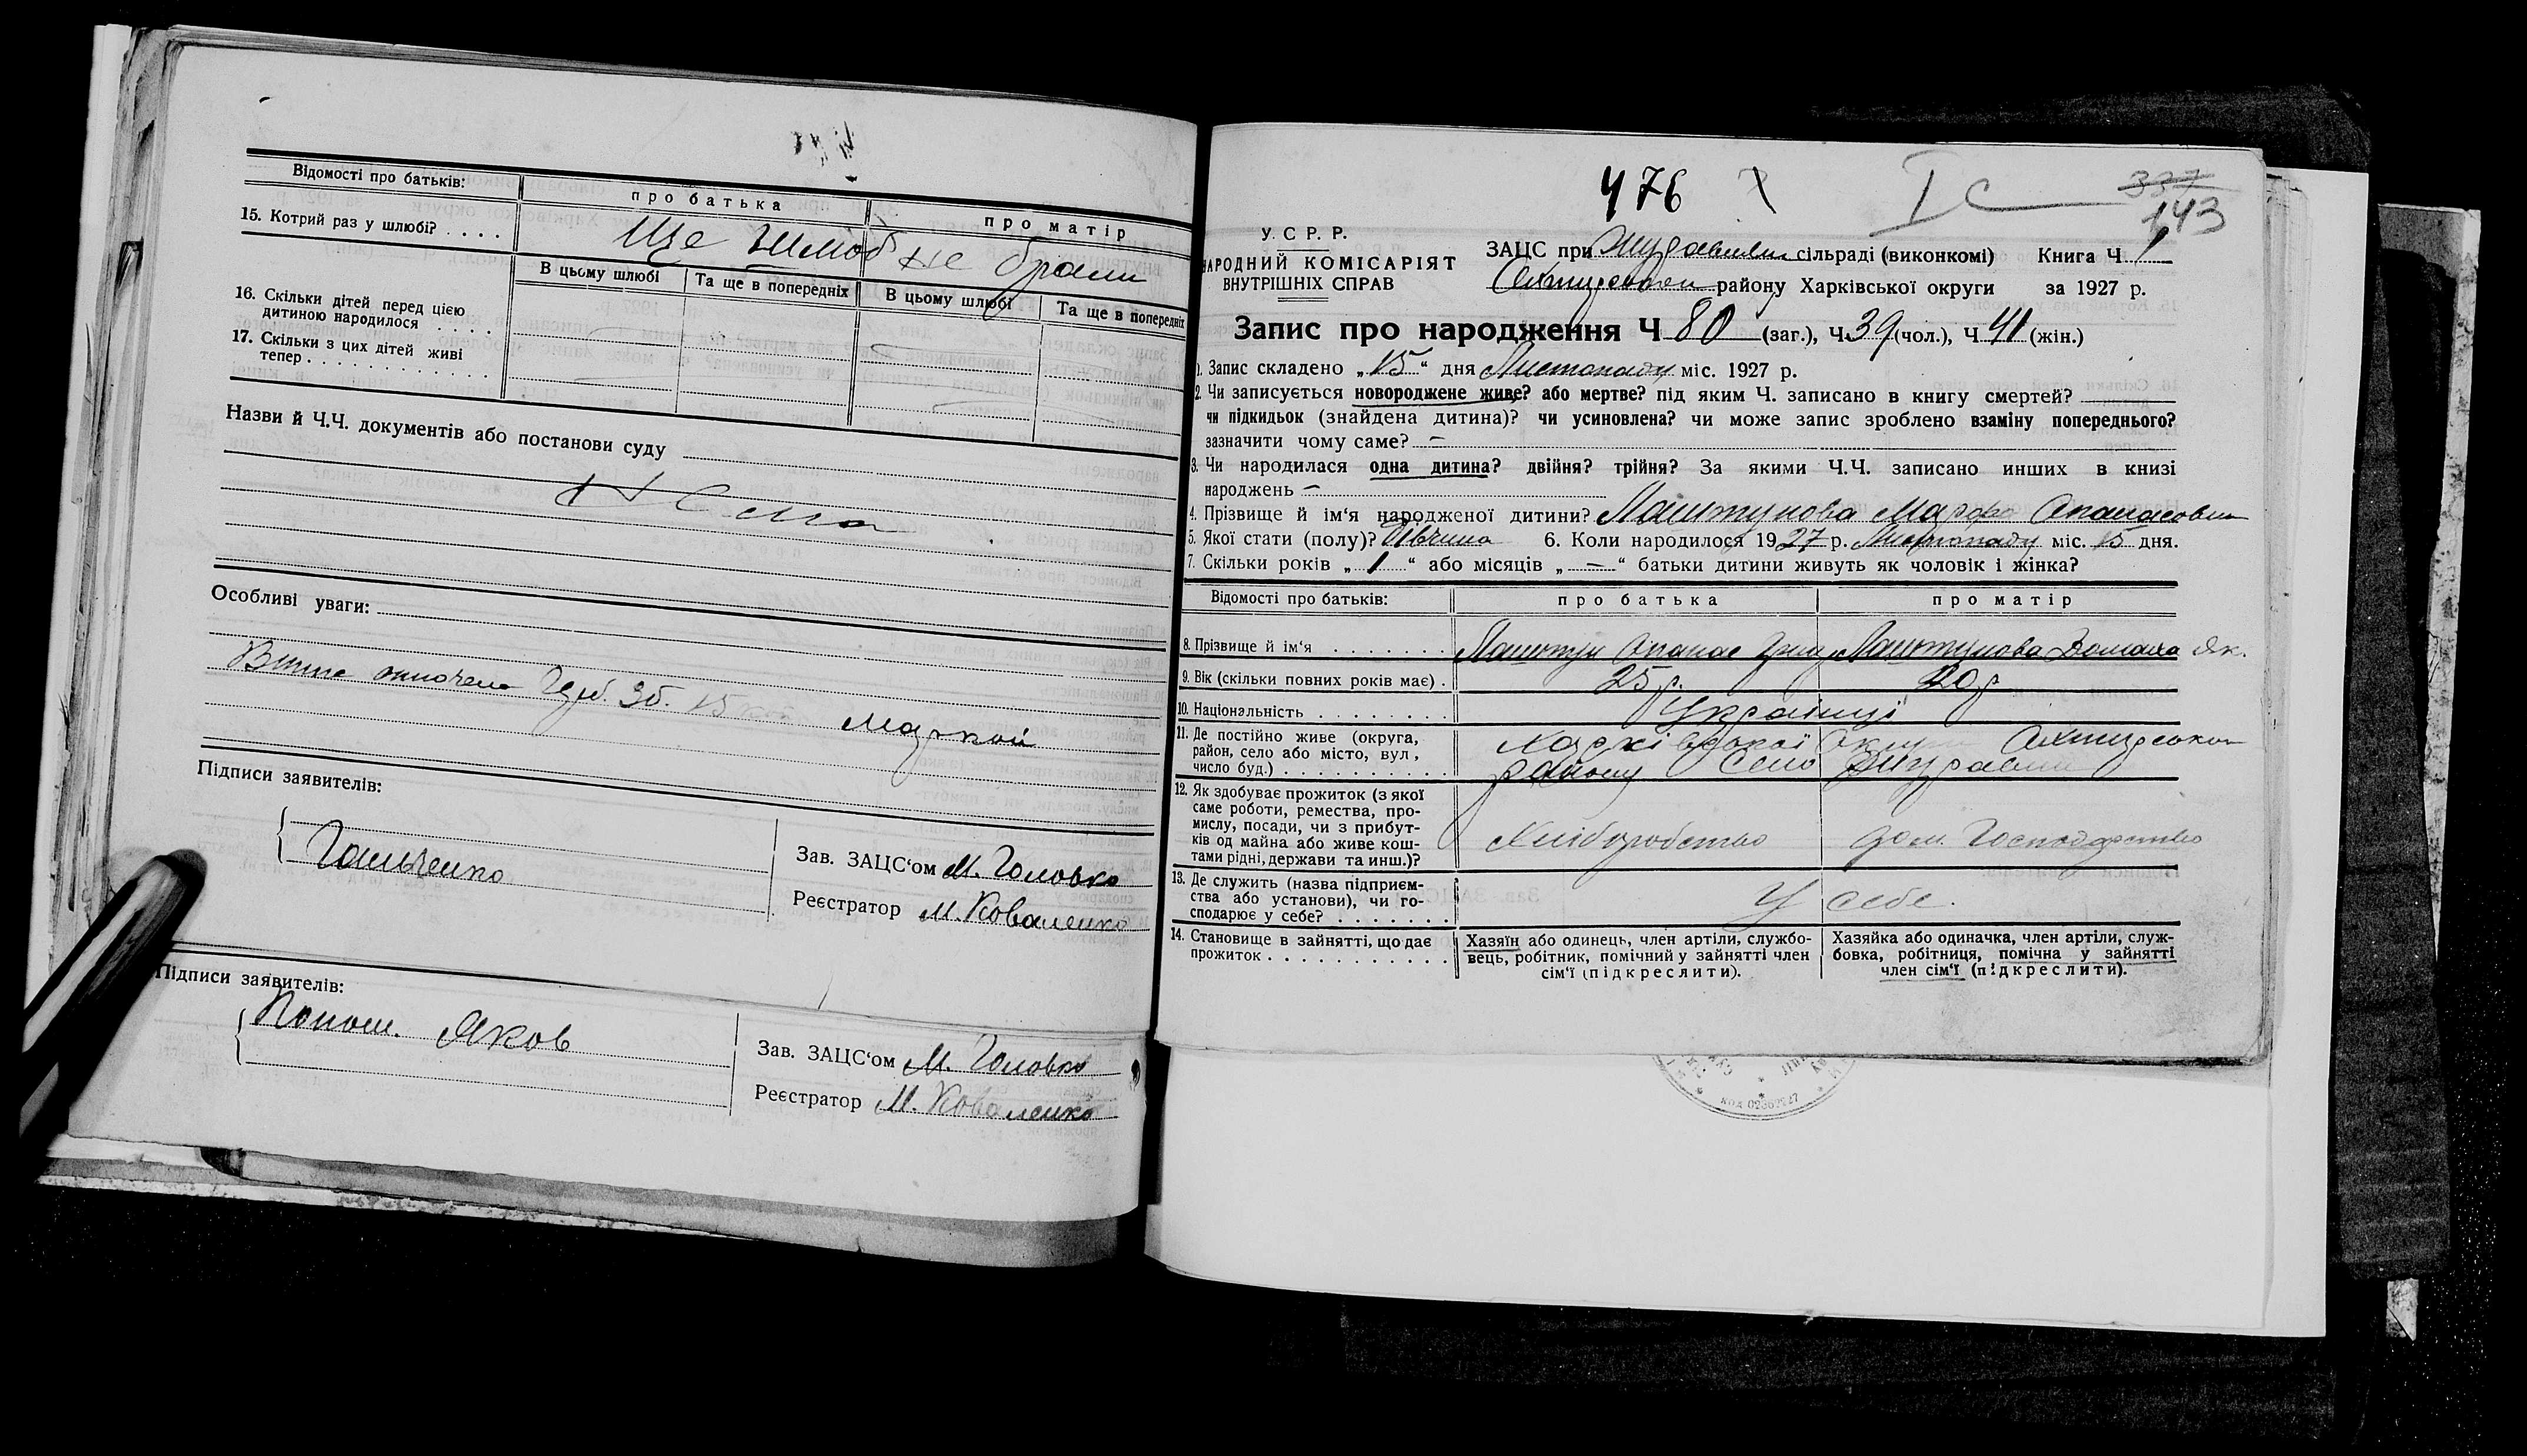 Відомості про батьків:
про батька
про матір
15. Котрий раз у шлюбі? . . . .
Ще шлюб не брали
В цьому шлюбі
Та ще в попередніх
В цьому шлюбі
Та ще в попередніх
16. Скільки дітей перед цією
дитиною народилося . . . .
17. Скільки з цих дітей живі
тепер . . . . . . . . . . . .
Назви й Ч.Ч. документів або постанови суду
Нема
Особливі уваги:
оплочено Герб. Зб. 15 коп. Маркой
Підписи заявителів:
Зав. ЗАЦС'ом М. Головко
Реєстратор М. Коваленко
Підписи заявителів:
Яков
Зав. ЗАЦС'ом М. Головко
Реєстратор М. Коваленко
476
337
143
У. С. Р. Р.
НАРОДНИЙ КОМІСАРІЯТ
ВНУТРІШНІХ СПРАВ
ЗАЦС при Журавнян сільраді (виконкомі) Книга Ч. 1
Охтирської району Харківської округи за 1927 р.
Запис про народження Ч 80 (заг.), Ч. 39 (чол.), Ч. 41 (жін.)
1. Запис складено „15“ дня Листопаду міс. 1927 р.
2. Чи записується новороджене живе? або мертве? під яким Ч. записано в книгу смертей?
чи підкидьок (знайдена дитина)? чи усиновлена? чи може запис зроблено взаміну попереднього?
зазначити чому саме? —
3. Чи народилася одна дитина? двійня? трійня? За якими Ч.Ч. записано инших в книзі
народжень —
4. Прізвище й ім'я народженої дитини? Лаштунова Марфа Опанасовна
5. Якої стати (полу)? Дівчина 6. Коли народилося 1927 р. Листопаду міс. 15 дня.
7. Скільки років „1“ або місяців „—“ батьки дитини живуть як чоловік і жінка?
Відомості про батьків:
про батька
про матір
8. Прізвище й ім'я . . . . . . .
Лаштун Опанас Григ
Лаштунова Домаха Як.
9. Вік (скільки повних років має) .
25 р.
20 р
10. Національність . . . . . . . .
Українці
11. Де постійно живе (округа,
район, село або місто, вул,
число буд.) . . . . . . . . . .
Харківської Округи Охтирського
району Село Журавне
12. Як здобуває прожиток (з якої
саме роботи, ремества, про-
мислу, посади, чи з прибут-
ків од майна або живе кош-
тами рідні, держави та инш.)?
Хліборобство
дом. Господарство
13. Де служить (назва підприєм-
ства або установи), чи го-
сподарює у себе? . . . . . . .
У себе.
14. Становище в зайнятті, що дає
прожиток . . . . . . . . . . .
Хазяїн або одинець, член артіли, службо-
вець, робітник, помічний у зайнятті член
сім'ї (підкреслити).
Хазяйка або одиначка, член артіли, служ-
бовка, робітниця, помічна у зайнятті
член сім'ї (підкреслити).